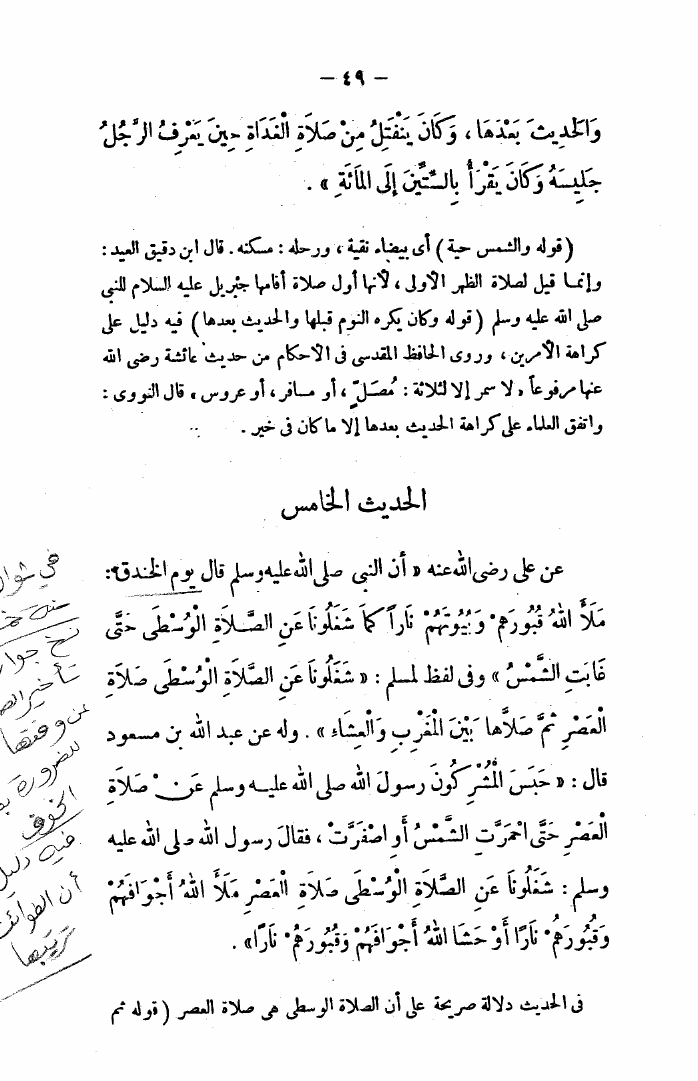 — ٤٩ —
وَالْحَدِيثَ بَعْدَهَا ، وَكَانَ يَنْفَتِلُ مِنْ صَلَاةِ الْغَدَاةِ حِينَ يَعْرِفُ الرَّجُلُ
جَلِيسَهُ وَكَانَ يَقْرَأُ بِالسِّتِّينَ إِلَى الْمَائَةِ » .
( قوله والشمس حية ) أى بيضاء نقية ، ورحله : مسكنه . قال ابن دقيق العيد :
وإنما قيل لصلاة الظهر الأولى ، لأنها أول صلاة أقامها جبريل عليه السلام للنبي
صلى الله عليه وسلم ( قوله وكان يكره النوم قبلها والحديث بعدها ) فيه دليل على
كراهة الأمرين ، وروى الحافظ المقدسى فى الأحكام من حديث عائشة رضى الله
عنها مرفوعاً « لا سمر إلا لثلاثة : مُصَلٍّ ، أو مسافر ، أو عروس » قال النووى :
واتفق العلماء على كراهة الحديث بعدها إلا ما كان فى خير .
الحديث الخامس
عن على رضى الله عنه « أن النبي صلى الله عليه وسلم قال يوم الخندق :
مَلَأَ اللهُ قُبُورَهُمْ وَبُيُوتَهُمْ نَاراً كَمَا شَغَلُونَا عَنِ الصَّلَاةِ الْوُسْطَى حَتَّى
غَابَتِ الشَّمْسُ » وفى لفظ لمسلم : « شَغَلُونَا عَنِ الصَّلَاةِ الْوُسْطَى صَلَاةِ
الْعَصْرِ ثُمَّ صَلَّاهَا بَيْنَ الْمَغْرِبِ وَالْعِشَاءِ » . وله عن عبد الله بن مسعود
قال : « حَبَسَ الْمُشْرِكُونَ رسولَ الله صلى الله عليه وسلم عَنْ صَلَاةِ
الْعَصْرِ حَتَّى احْمَرَّتِ الشَّمْسُ أَوِ اصْفَرَّتْ ، فقالَ رسول الله صلى الله عليه
وسلم : شَغَلُونَا عَنِ الصَّلَاةِ الْوُسْطَى صَلَاةِ الْعَصْرِ مَلَأَ اللهُ أَجْوَافَهُمْ
وَقُبُورَهُمْ نَارًا أَوْ حَشَا اللهُ أَجْوَافَهُمْ وَقُبُورَهُمْ نَارًا» .
فى الحديث دلالة صريحة على أن الصلاة الوسطى هى صلاة العصر ( قوله ثم
في شوال
تأخير
عن وقتها
للضرورة
الخوف
فيه دليل
أن
ترتيبها